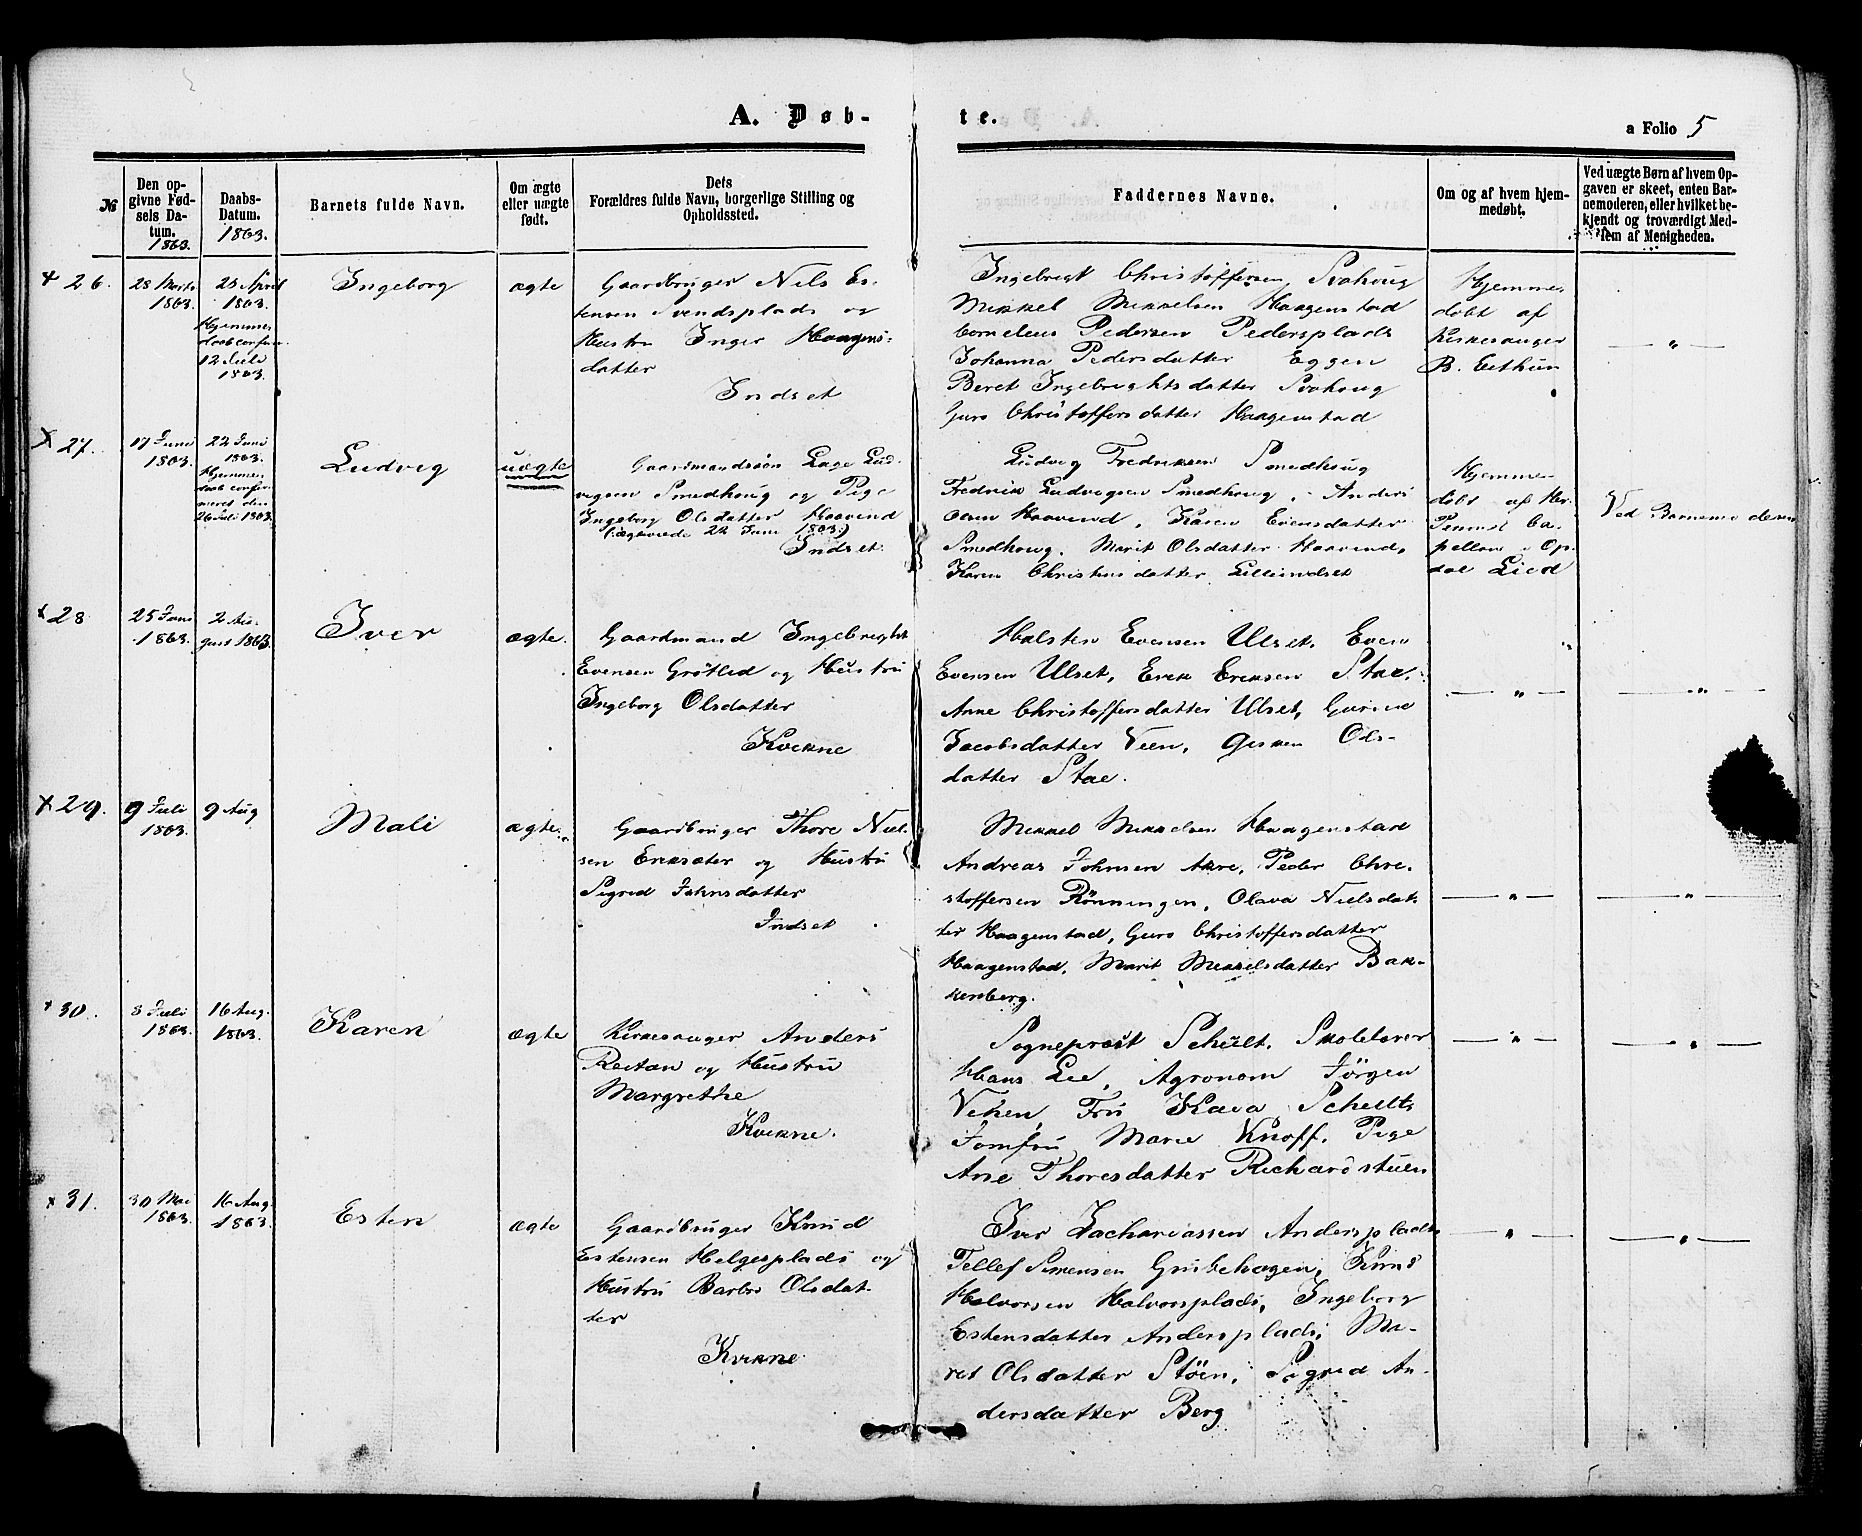 A. Døb-
te.
a Folio 5
№
Den op-
givne Fød-
sels Da-
tum.
1863.
Daabs-
Datum.
1863.
Barnets fulde Navn.
Om ægte
eller uægte
født.
Dets
Forældres fulde Navn, borgerlige Stilling og
Opholdssted.
Faddernes Navne.
Om og af hvem hjem-
medøbt.
Ved uægte Børn af hvem Op-
gaven er skeet, enten Bar-
nemoderen, eller hvilket be-
kjendt og troværdigt Med-
lem af Menigheden.
+ 26.
28 Marts
1863.
23 April
1863.
Hjemme-
daab confir.
12 Juli
1863.
Ingeborg
ægte
Gaardbruger Nils Es-
tensen Svendsplads og
Hustru Inger Haagens-
datter
Indset
Ingebrigt Christoffersen
Mikkel Mikkelsen Haagenstad
Cornelius Pedersen Pedersplads
Johanna Pedersdatter Eggen
Beret Ingebrigtsdatter
Guro Christoffersdatter Haagenstad
Hjemme-
døbt af
Kirkesanger
B.
— " —
x 27.
17 Juni
1863.
22 Juni
1863.
Hjemme-
daab confir-
meret den
26 Juli 1863.
Ludvig
uægte
Gaardmandssøn Lage Lud-
vigsen Smedhoug og Pige
Ingeborg Olsdatter Haavind
22 Juni 1863.)
Indset
Ludvig Fredriksen Smedhoug
Fredrik Ludvigsen Smedhoug, Anders
Olsen Haavind, Karen Evensdatter
Smedhoug, Marit Olsdatter Haavind,
Karen Christensdatter Lilleindset
Hjemme-
døbt af Hr.
ca-
pellan i Op-
dal Lied
Ved Barnemoderen
x 28
25 Juni
1863.
2 Au-
gust 1863.
Iver
ægte.
Gaardmand Ingebrigt
Evensen Grøtlid og Hustru
Ingeborg Olsdatter
Kvikne
Halsten Evensen Ulset, Even
Evensen Ulset, Erik Eriksen Stae,
Anne Christoffersdatter Ulset, Gurine
Jacobsdatter Veen, Gisken Ols-
datter Stae.
— " —
— " —
x 29.
9 Juli
1863.
9 Aug
Mali
ægte.
Gaardbruger Thore Niel-
sen Eriksæter og Hustru
Sigrid Johnsdatter
Indset
Mikkel Mikkelsen Haagenstad
Andreas Johnsen Akre, Peder Chri-
stoffersen Rønningen, Olava Nielsdat-
ter Haagenstad, Guro Christoffersdatter
Haagenstad, Marit Mikkelsdatter Bak-
kenberg.
— " —
— " —
x 30.
8 Juli
1863.
16 Aug.
1863.
Karen
ægte
Kirkesanger Anders
Reitan og Hustru
Margrethe
Kvikne.
Sogneprest Schult, Skolelærer
Hans Lie, Agronom Jørgen
Veken, Fru Kaia Schult,
Jomfru Marie Knoff, Pige
Ane Thoresdatter Richardstuen
— " —
— " —
x 31.
30 Mai
1863.
16 Aug.
1863.
Esten
ægte
Gaardbruger Knud
Estensen Helgesplads og
Hustru Barbro Olsdat-
ter
Kvikne
Iver Zachariassen Andersplads
Tellef Simensen Grubehagen, Knud
Halvorsen Halvorsplads, Ingeborg
Estensdatter Andersplads, Ma-
rit Olsdatter Støen, Sigrid An-
dersdatter Berg
— " —
— " —